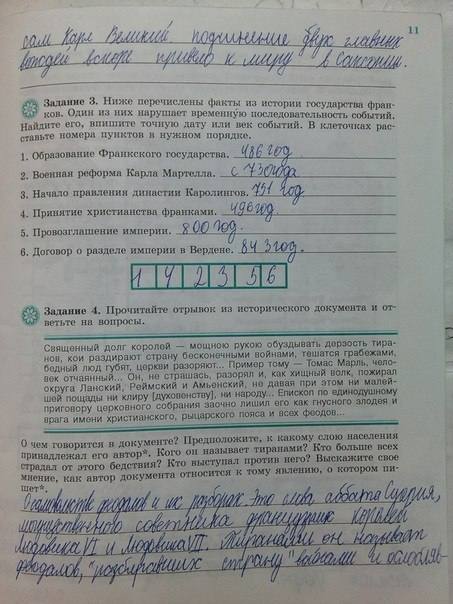 11
сам Карл Великий подчинение двух главных
вождей вскоре привело к миру в Саксонии.
Задание 3. Ниже перечислены факты из истории государства фран-
ков. Один из них нарушает временную последовательность событий.
Найдите его, впишите точную дату или век событий. В клеточках рас-
ставьте номера пунктов в нужном порядке.
1. Образование Франкского государства. 486 год
2. Военная реформа Карла Мартелла. с 730 года
3. Начало правления династии Каролингов. 751 год.
4. Принятие христианства франками. 496 год.
5. Провозглашение империи. 800 год.
6. Договор о разделе империи в Вердене. 843 год.
1 4 2 3 5 6
Задание 4. Прочитайте отрывок из исторического документа и от-
ветьте на вопросы.
Священный долг королей — мощною рукою обуздывать дерзость тира-
нов, кои раздирают страну бесконечными войнами, тешатся грабежами,
бедный люд губят, церкви разоряют... Пример тому — Томас Марль, чело-
век отчаянный... Он, не страшась, разорял и, как хищный волк, пожирал
округа Ланский, Реймский и Амьенский, не давая при этом ни малей-
шей пощады ни клиру [духовенству], ни народу... Епископ по единодушному
приговору церковного собрания заочно лишил его как гнусного злодея и
врага имени христианского, рыцарского пояса и всех феодов...
О чем говорится в документе? Предположите, к какому слою населения
принадлежал его автор*. Кого он называет тиранами? Кто больше всех
страдал от этого бедствия? Кто выступал против него? Выскажите свое
мнение, как автор документа относится к тому явлению, о котором пи-
шет*.
О самовольстве феодалов и их разборах. Это слова аббата Сугерия,
могущественного советника французских королей
Людовика VI и Людовика VII. Тиранами он называет
феодалов, "раздиравших страну" войнами и ослабляв-